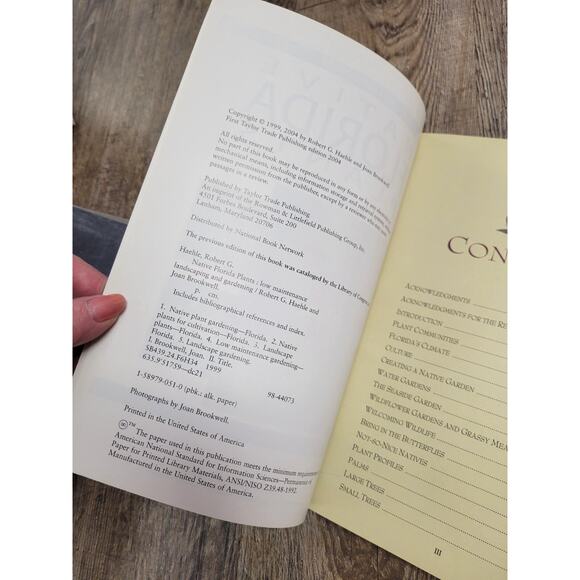 Copyright © 1999, 2004 by Robert G. Haehle and Joan Brookwell.
First Taylor Trade Publishing edition 2004
All rights reserved.
No part of this book may be reproduced in any form or by any electronic or
mechanical means, including information storage and retrieval systems, without
written permission from the publisher, except by a reviewer who may quote
passages in a review.
Published by Taylor Trade Publishing
An imprint of the Rowman & Littlefield Publishing Group, Inc.
4501 Forbes Boulevard, Suite 200
Lanham, Maryland 20706
Distributed by National Book Network
The previous edition of this book was cataloged by the Library of Congress
Haehle, Robert G.
Native Florida Plants : low maintenance
landscaping and gardening / Robert G. Haehle and
Joan Brookwell.
p. cm.
Includes bibliographical references and index.
1. Native plant gardening—Florida. 2. Native
plants for cultivation—Florida. 3. Landscape
plants—Florida. 4. Low maintenance gardening—
Florida. 5. Landscape gardening—
I. Brookwell, Joan. II. Title.
SB439.24.F6H34 1999
635.9'51759—dc21
98-44073
1-58979-051-0 (pbk.: alk. paper)
Photographs by Joan Brookwell.
Printed in the United States of America
∞™
The paper used in this publication meets the minimum requirements
American National Standard for Information Sciences—Permanence of
Paper for Printed Library Materials, ANSI/NISO Z39.48-1992.
Manufactured in the United States of America.
CON
ACKNOWLEDGMENTS
ACKNOWLEDGMENTS FOR THE RE
INTRODUCTION
PLANT COMMUNITIES
FLORIDA'S CLIMATE
CULTURE
CREATING A NATIVE GARDEN
WATER GARDENS
THE SEASIDE GARDEN
WILDFLOWER GARDENS AND GRASSY MEA
WELCOMING WILDLIFE
BRING IN THE BUTTERFLIES
NOT-SO-NICE NATIVES
PLANT PROFILES
PALMS
LARGE TREES
SMALL TREES
III